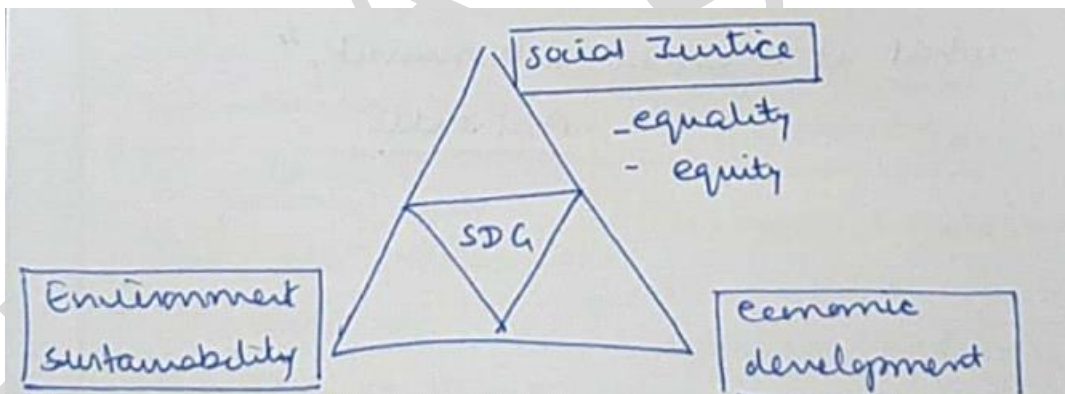 social Justice
- equality
- equity
SDG
Environment
sustainability
economic
development